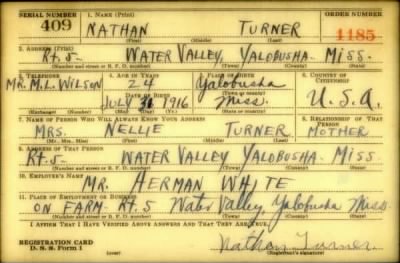 SERIAL NUMBER 1. NAME (Print) ORDER NUMBER
409 NATHAN TURNER 1185
(First) (Middle) (Last)
2. ADDRESS (Print)
Rt. 5- WATER VALLEY, YALOBUSHA- MISS.
(Number and street or R. F. D. number) (Town) (County) (State)
3. TELEPHONE 4. AGE IN YEARS 5. PLACE OF BIRTH 6. COUNTRY OF CITIZENSHIP
MR. M. L. WILSON 24 Yalobusha
DATE OF BIRTH (Town or county)
JULY 1916 Miss. U.S.A.
(Exchange) (Number) (Mo.) (Day) (Yr.) (State or country)
7. NAME OF PERSON WHO WILL ALWAYS KNOW YOUR ADDRESS 8. RELATIONSHIP OF THAT PERSON
MRS. NELLIE TURNER MOTHER
(Mr., Mrs., Miss) (First) (Middle) (Last)
9. ADDRESS OF THAT PERSON
Rt. 5- WATER VALLEY YALOBUSHA- MISS.
(Number and street or R. F. D. number) (Town) (County) (State)
10. EMPLOYER'S NAME
MR. HERMAN WHITE
11. PLACE OF EMPLOYMENT OR BUSINESS
ON FARM- Rt. 5 Water Valley, Yalobusha Miss.
(Number and street or R. F. D. number) (Town) (County) (State)
I AFFIRM THAT I HAVE VERIFIED ABOVE ANSWERS AND THAT THEY ARE TRUE.
REGISTRATION CARD
D. S. S. Form 1 Nathan Turner
(Registrant's signature)